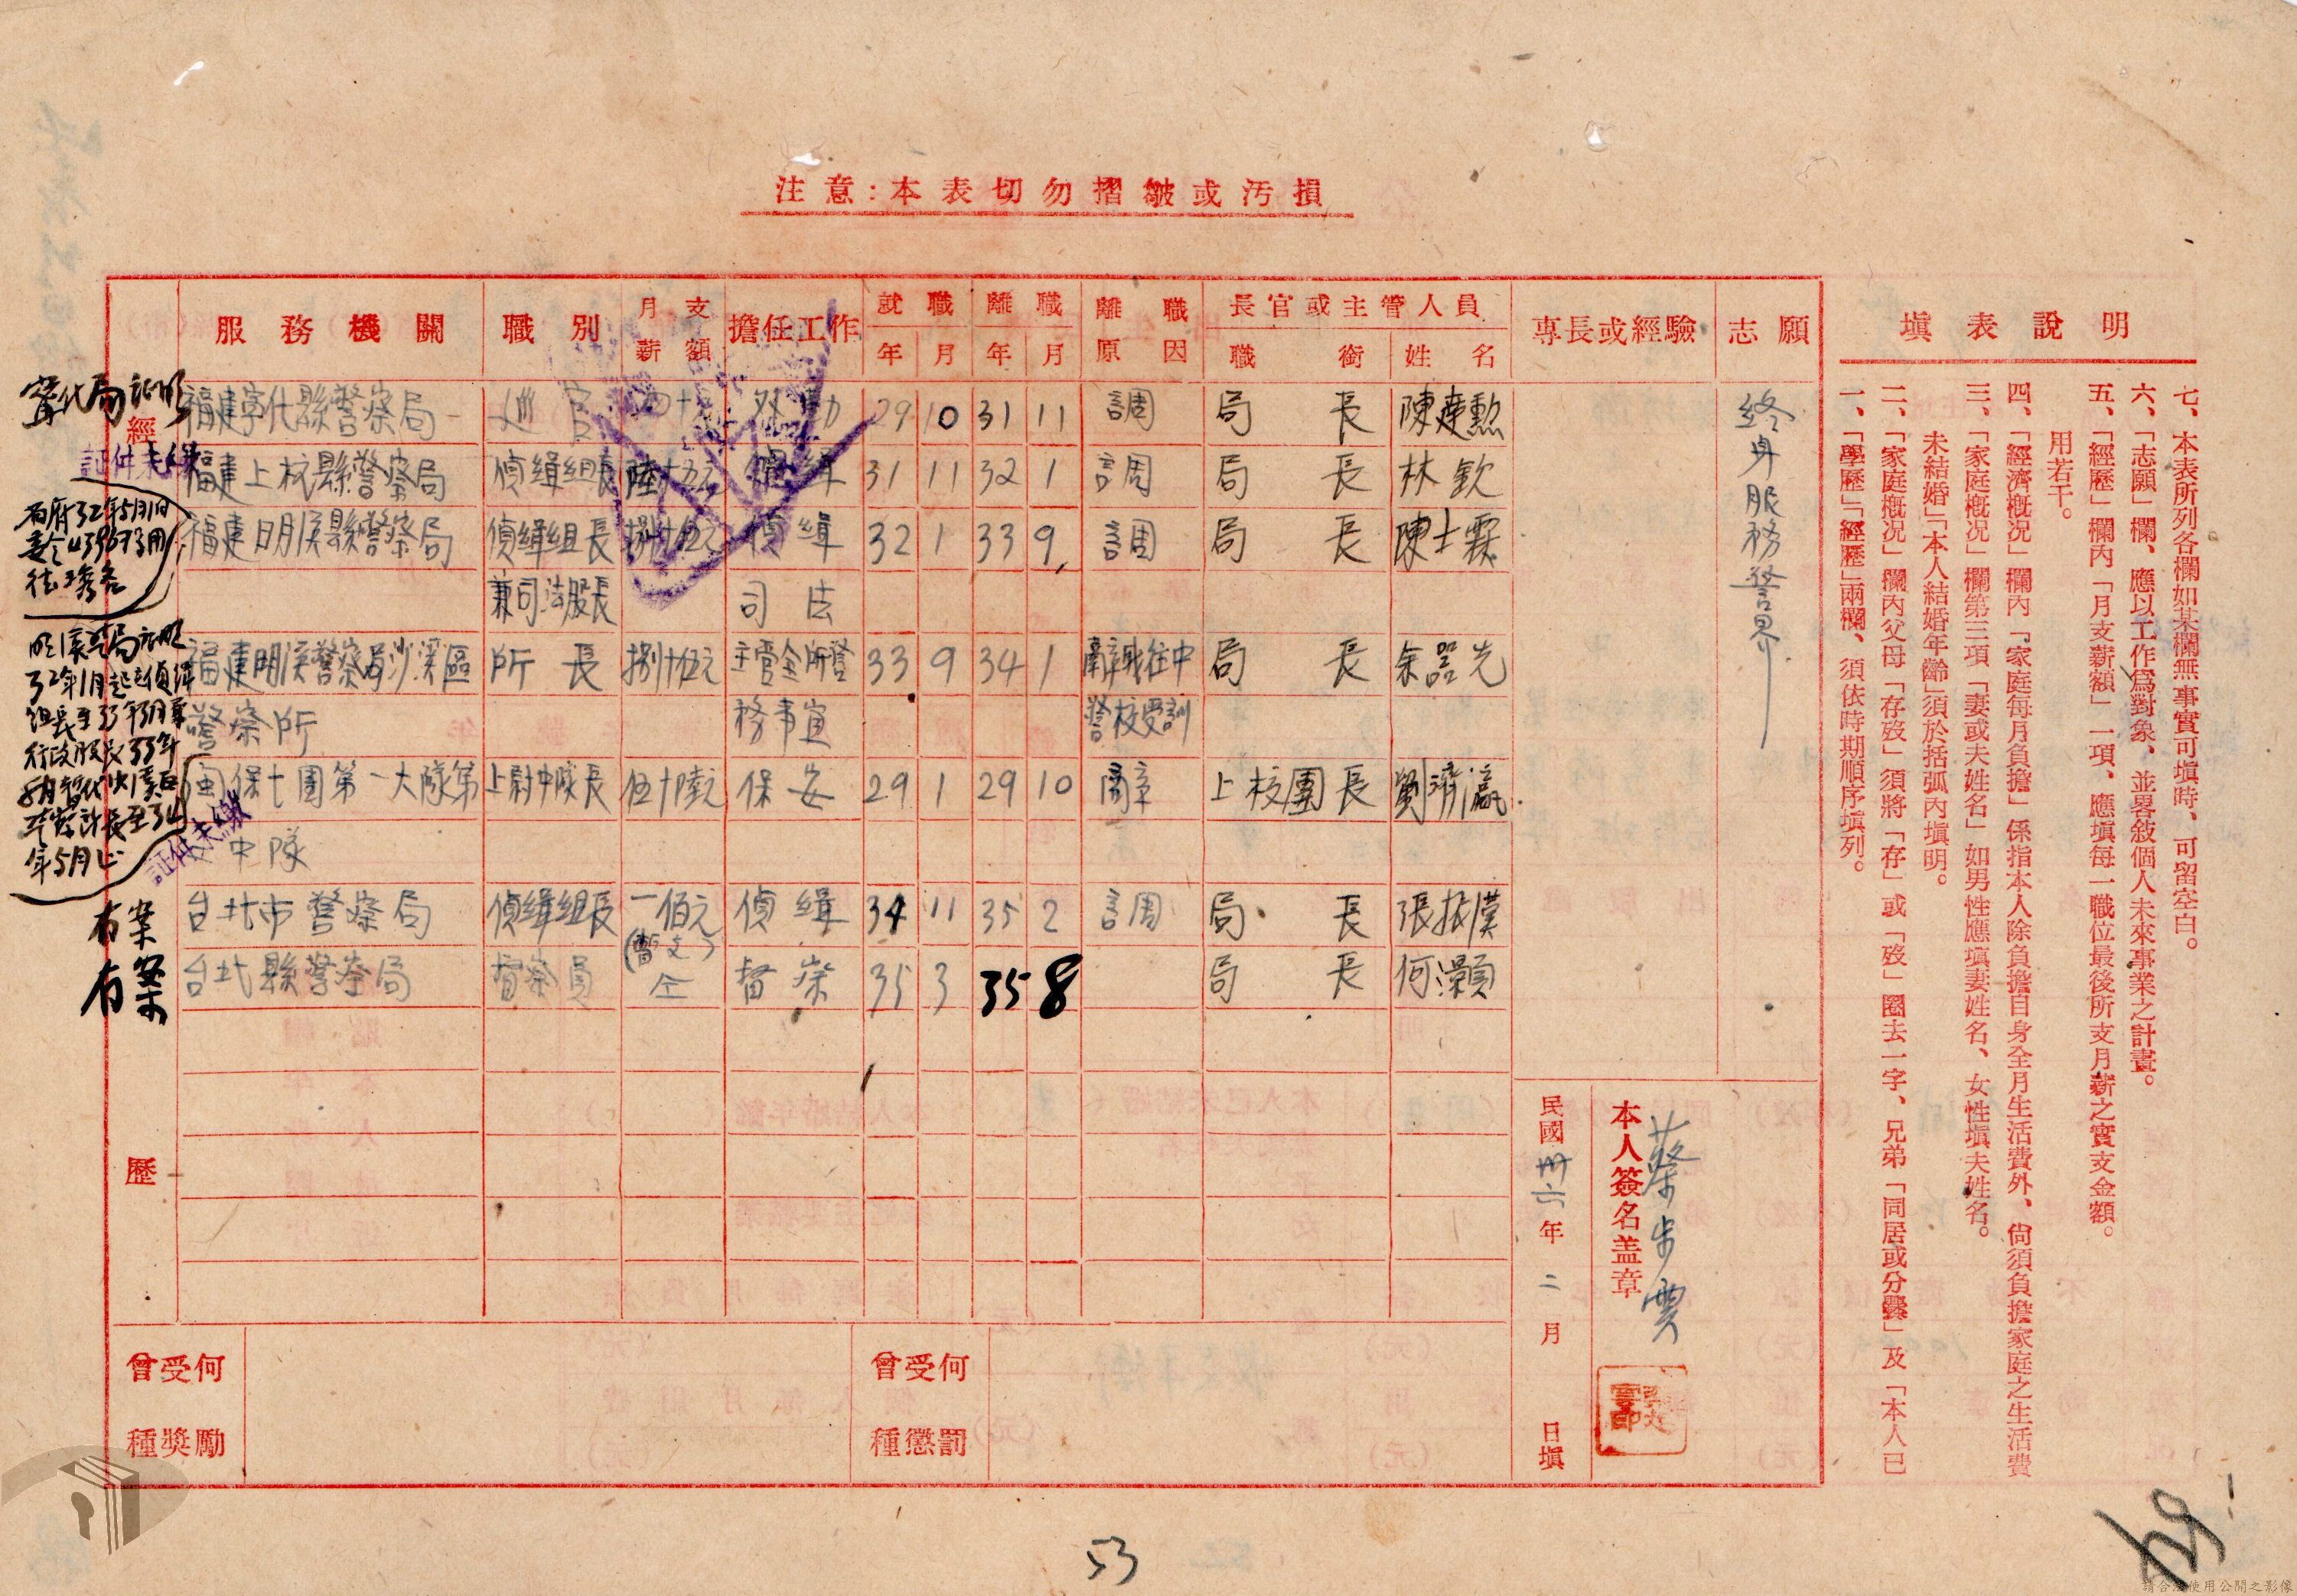 注意：本表切勿摺皺或汚損
填表說明
一、「學歷」「經歷」兩欄、須依時期順序填列。
二、「家庭概況」欄內父母「存歿」須將「存」或「歿」圈去一字、兄弟「同居或分爨」及「本人已
未結婚」「本人結婚年齡」須於括弧內填明。
三、「家庭概況」欄第三項「妻或夫姓名」如男性應填妻姓名、女性填夫姓名。
四、「經濟概況」欄內「家庭每月負擔」係指本人除負擔自身全月生活費外、尙須負擔家庭之生活費
用若干。
五、「經歷」欄內「月支薪額」一項、應填每一職位最後所支月薪之實支金額。
六、「志願」欄、應以工作爲對象、並畧敘個人未來事業之計畫。
七、本表所列各欄如某欄無事實可填時、可留空白。
經歷
服務機關 職別 月支薪額 擔任工作 就職 年 月 離職 年 月 離職原因 長官或主管人員 職銜 姓名 專長或經驗 志願
福建寧化縣警察局 巡官 四十 外勤 29 10 31 11 調 局長 陳建勲
福建上杭縣警察局 偵緝組長 陸十五元 偵緝 31 11 32 1 調 局長 林欽
福建明溪縣警察局 偵緝組長 捌十伍元 偵緝 32 1 33 9 調 局長 陳士霖
兼司法股長 司法
福建明溪警察局沙溪區 所長 捌十伍元 主管全所警 33 9 34 1 辭職往中 局長 余器光
警察所 務事宜 警校受訓
閩保七團第一大隊第 上尉中隊長 伍十陸元 保安 29 1 29 10 上校團長 劉濟瀛
中隊
台北市警察局 偵緝組長 一佰元 偵緝 34 11 35 2 調 局長 張振漢
(暫支)
台北縣警察局 督察員 仝 督察 35 3 35 8 局長 何灝
終身服務警界
寧化局証明
証件未繳
証件未繳
有案
有案
本人簽名盖章
蔡步雲
民國卅六年二月 日填
曾受何種獎勵
曾受何種懲罰
53
請合法使用公開之影像